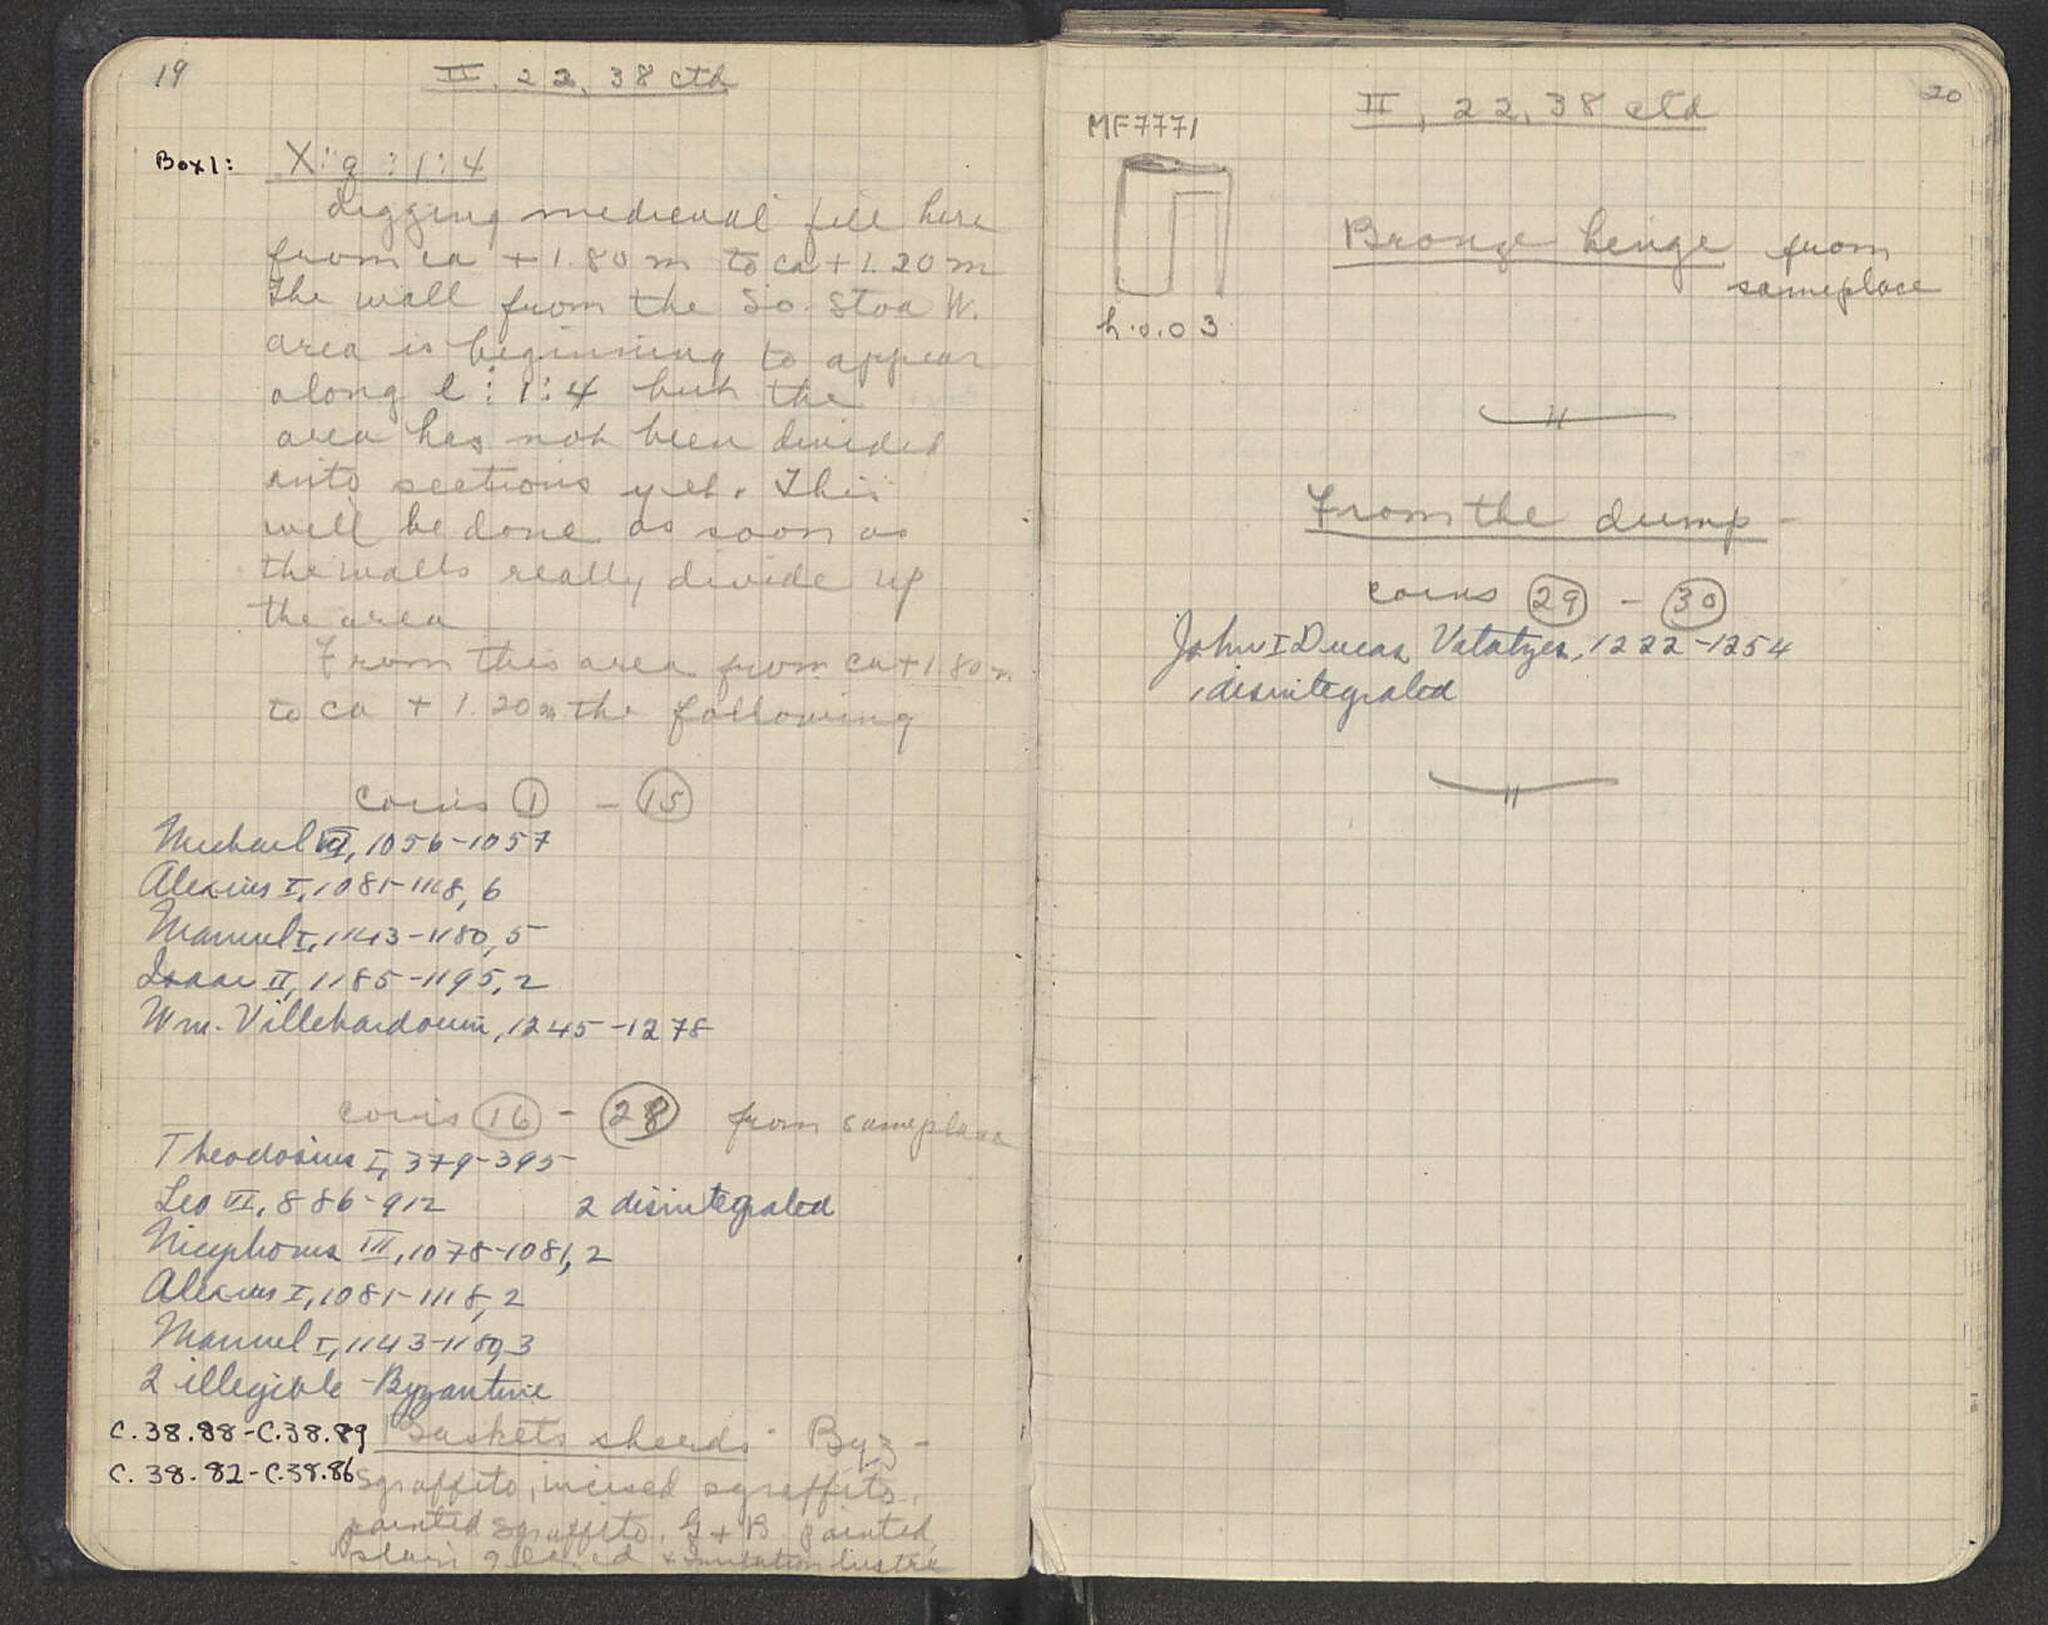 19
II. 22, 38 ctd
Box1: X:g:1:4
digging medieval fill here
from ca +1.80 m to ca +1.20 m
The wall from the So. Stoa W.
area is beginning to appear
along l:1:4 but the
area has not been divided
into sections yet. This
will be done as soon as
the walls really divide up
the area
From this area from ca +1.80 m
to ca + 1.20 m the following
coins 1 - 15
Michael VI, 1056-1057
Alexius I, 1081-1118, 6
Manuel I, 1143-1180, 5
Isaac II, 1185-1195, 2
Wm. Villehardouin, 1245-1278
coins 16 - 28 from sameplace
Theodosius I, 379-395
Leo VI, 886-912 2 disintegrated
Nicephorus III, 1078-1081, 2
Alexius I, 1081-1118, 2
Manuel I, 1143-1180, 3
2 illegible - Byzantine
C.38.88-C.38.89 Baskets sherds - Byz -
C.38.82-C.38.86 sgraffito, incised sgraffito,
painted sgraffito, G + B painted,
plain glazed + Imitation lustre
20
II, 22, 38 ctd
MF7771
Bronze hinge from
sameplace
h.0.03
From the dump -
coins 29 - 30
John I Ducas Vatatzes, 1222-1254
1 disintegrated